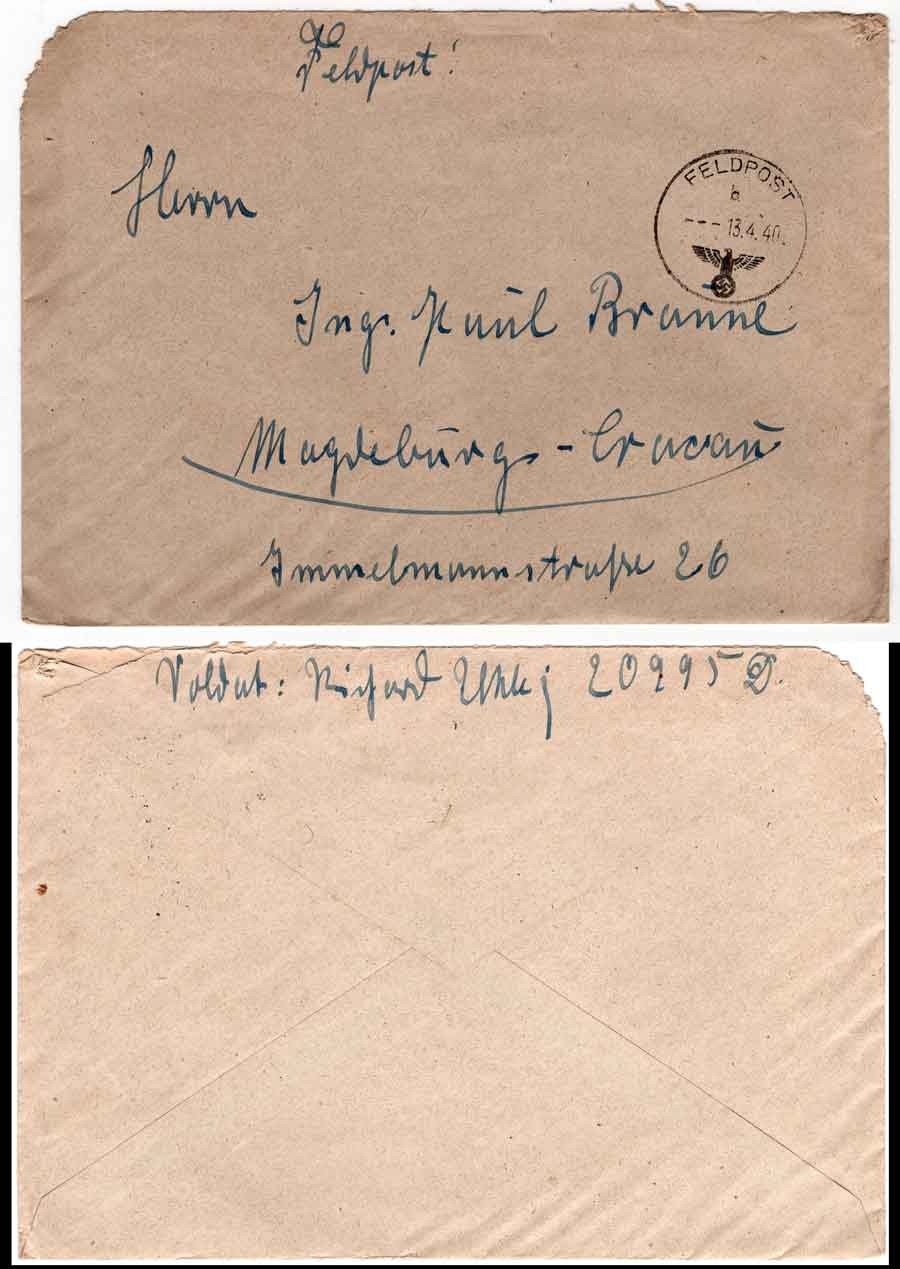 Feldpost!
FELDPOST
b
--- 13.4.40.
Herrn
Ing. Paul Braune
Magdeburg-Cracau
Immelmannstraße 26
Soldat: Richard 20995 D.